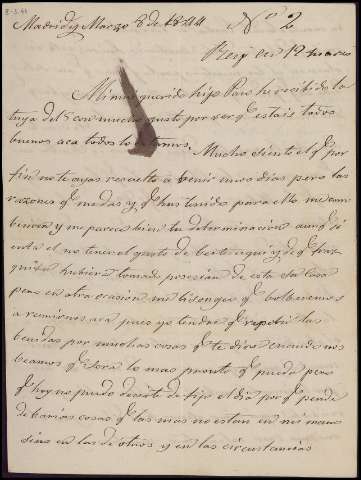 8-3-44
Madrid y Marzo 8 de 1844
Nº 2
en 12 marzo
Mi mas querido hijo Paco he recibido la
tuya del con mucho gusto por ver q.e estais todos
buenos aca todos lo estamos. Mucho siento el q.e por
fin no te ayas resuelto a benir unos dias pero las
razones q.e me das y q.e has tenido para ello me com
bencen y me parece bien tu determinacion aunq.e si
enta el no tener el gusto de berte aqui y de q.e
hubiera tomado posecion de esta su casa
pero en otra ocasion me lisongeo q.e bolberemos
a reunirnos aca pues yo tendre q.e repetir las
benidas por muchas cosas q.e te dire cuando nos
beamos q.e sera lo mas pronto q.e pueda pero
q.e hoy no puedo decirte de fijo el dia por q.e pende
de barias cosas q.e las mas no estan en mi mano
sino en las de otros y en las circustancias